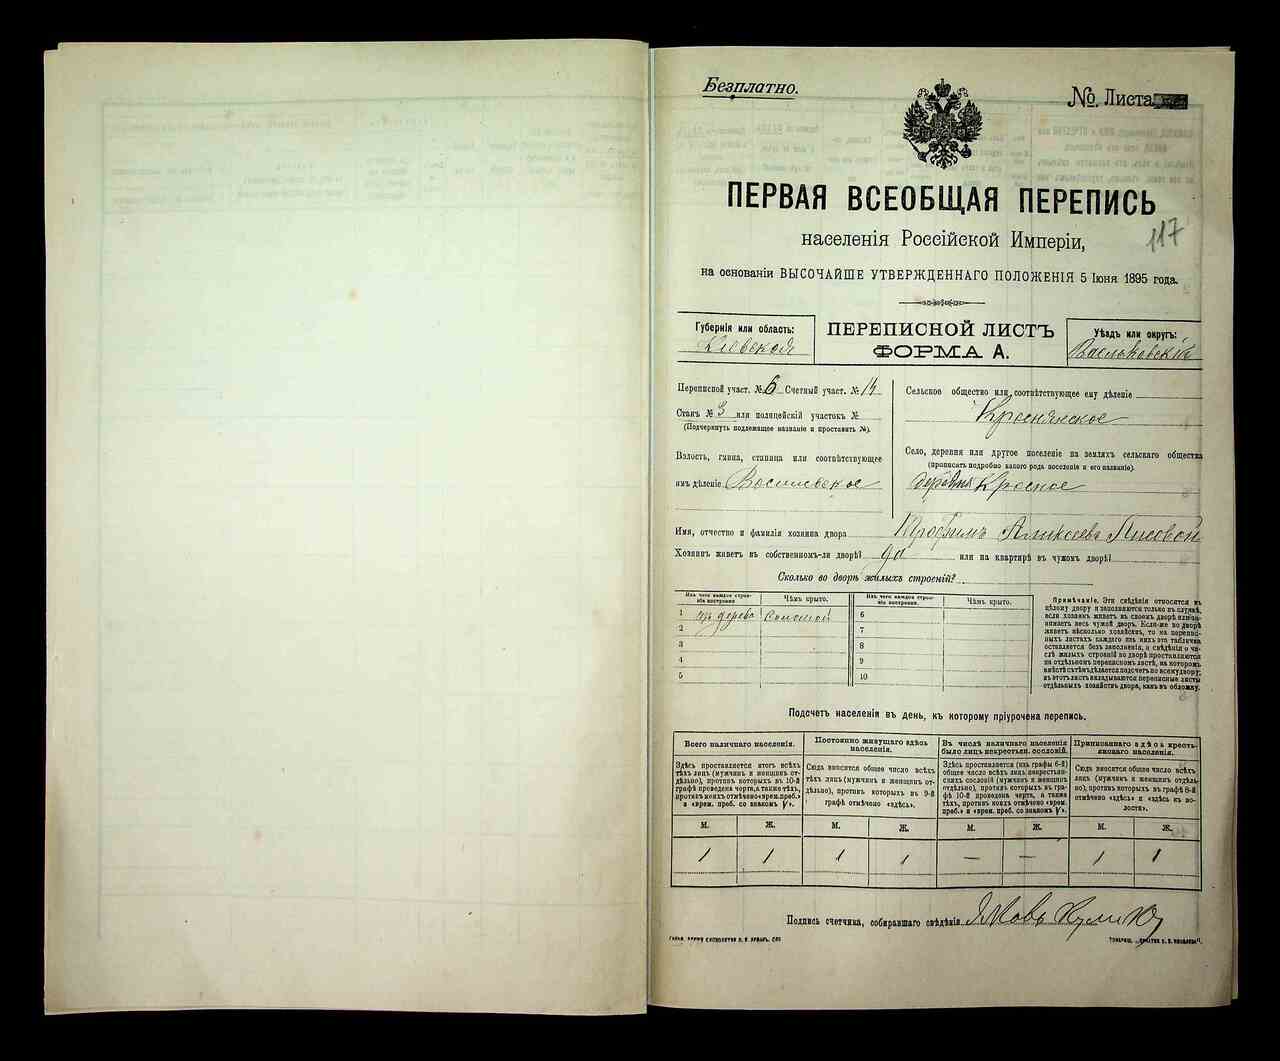 Безплатно.
№ Листа
ПЕРВАЯ ВСЕОБЩАЯ ПЕРЕПИСЬ
населенія Россійской Имперіи,
117
на основаніи ВЫСОЧАЙШЕ УТВЕРЖДЕННАГО ПОЛОЖЕНІЯ 5 Іюня 1895 года.
Губернія или область:
Кіевской
ПЕРЕПИСНОЙ ЛИСТЪ
ФОРМА А.
Уѣздъ или округъ:
Васильковскій
Переписной участ. № 6 Счетный участ. № 14
Станъ № 3 или полицейскій участокъ №
(Подчеркнуть подлежащее названіе и проставить №).
Волость, гмина, станица или соотвѣтствующее
имъ дѣленіе Василевское
Сельское общество или соотвѣтствующее ему дѣленіе
Краснянское
Село, деревня или другое поселеніе на земляхъ сельскаго общества
(прописать подробно какого рода поселеніе и его названіе).
деревня Красное
Имя, отчество и фамилія хозяина двора Трофимъ Алексеевъ Лисовой
Хозяинъ живетъ въ собственномъ-ли дворѣ? да или на квартирѣ въ чужомъ дворѣ?
Сколько во дворѣ жилыхъ строеній?
Изъ чего каждое строеніе построено.
Чѣмъ крыто.
1 изъ дерева Соломой
2
3
4
5
Изъ чего каждое строеніе построено.
Чѣмъ крыто.
6
7
8
9
10
Примѣчаніе. Эти свѣдѣнія относятся къ
цѣлому двору и заполняются только въ случаѣ,
если хозяинъ живетъ въ своемъ дворѣ или занимаетъ весь чужой дворъ. Если-же во дворѣ
живетъ нѣсколько хозяйствъ, то на переписныхъ листахъ каждаго изъ нихъ эта табличка
оставляется безъ заполненія, а свѣдѣнія о числѣ жилыхъ строеній во дворѣ проставляются
на отдѣльномъ переписномъ листѣ, на которомъ
вмѣстѣ съ тѣмъ дѣлается подсчетъ по всему двору;
въ этотъ листъ вкладываются переписные листы
отдѣльныхъ хозяйствъ двора, какъ въ обложку.
Подсчетъ населенія въ день, къ которому пріурочена перепись.
Всего наличнаго населенія.
Здѣсь проставляется итогъ всѣхъ
тѣхъ лицъ (мужчинъ и женщинъ отдѣльно), противъ которыхъ въ 10-й
графѣ проведена черта, а также тѣхъ,
противъ коихъ отмѣчено «врем. преб.»
и «врем. преб. со знакомъ V».
Постоянно живущаго здѣсь
населенія.
Сюда вносится общее число всѣхъ
тѣхъ лицъ (мужчинъ и женщинъ отдѣльно), противъ которыхъ въ 9-й
графѣ отмѣчено «здѣсь».
Въ числѣ наличнаго населенія
было лицъ некрестьян. сословій.
Здѣсь проставляется (изъ графы 6-й)
общее число всѣхъ лицъ некрестьянскихъ сословій (мужчинъ и женщинъ
отдѣльно), противъ которыхъ въ графѣ 10-й проведена черта, а также
тѣхъ, противъ коихъ отмѣчено «врем.
преб.» и «врем. преб. со знакомъ V».
Приписаннаго здѣсь крестьянскаго населенія.
Сюда вносится общее число всѣхъ
лицъ (мужчинъ и женщинъ отдѣльно), противъ которыхъ въ графѣ 8-й
отмѣчено «здѣсь» и «здѣсь къ волости».
М. Ж. М. Ж. М. Ж. М. Ж.
1 1 1 1 — — 1 1
Подпись счетчика, собиравшаго свѣдѣнія Яковъ